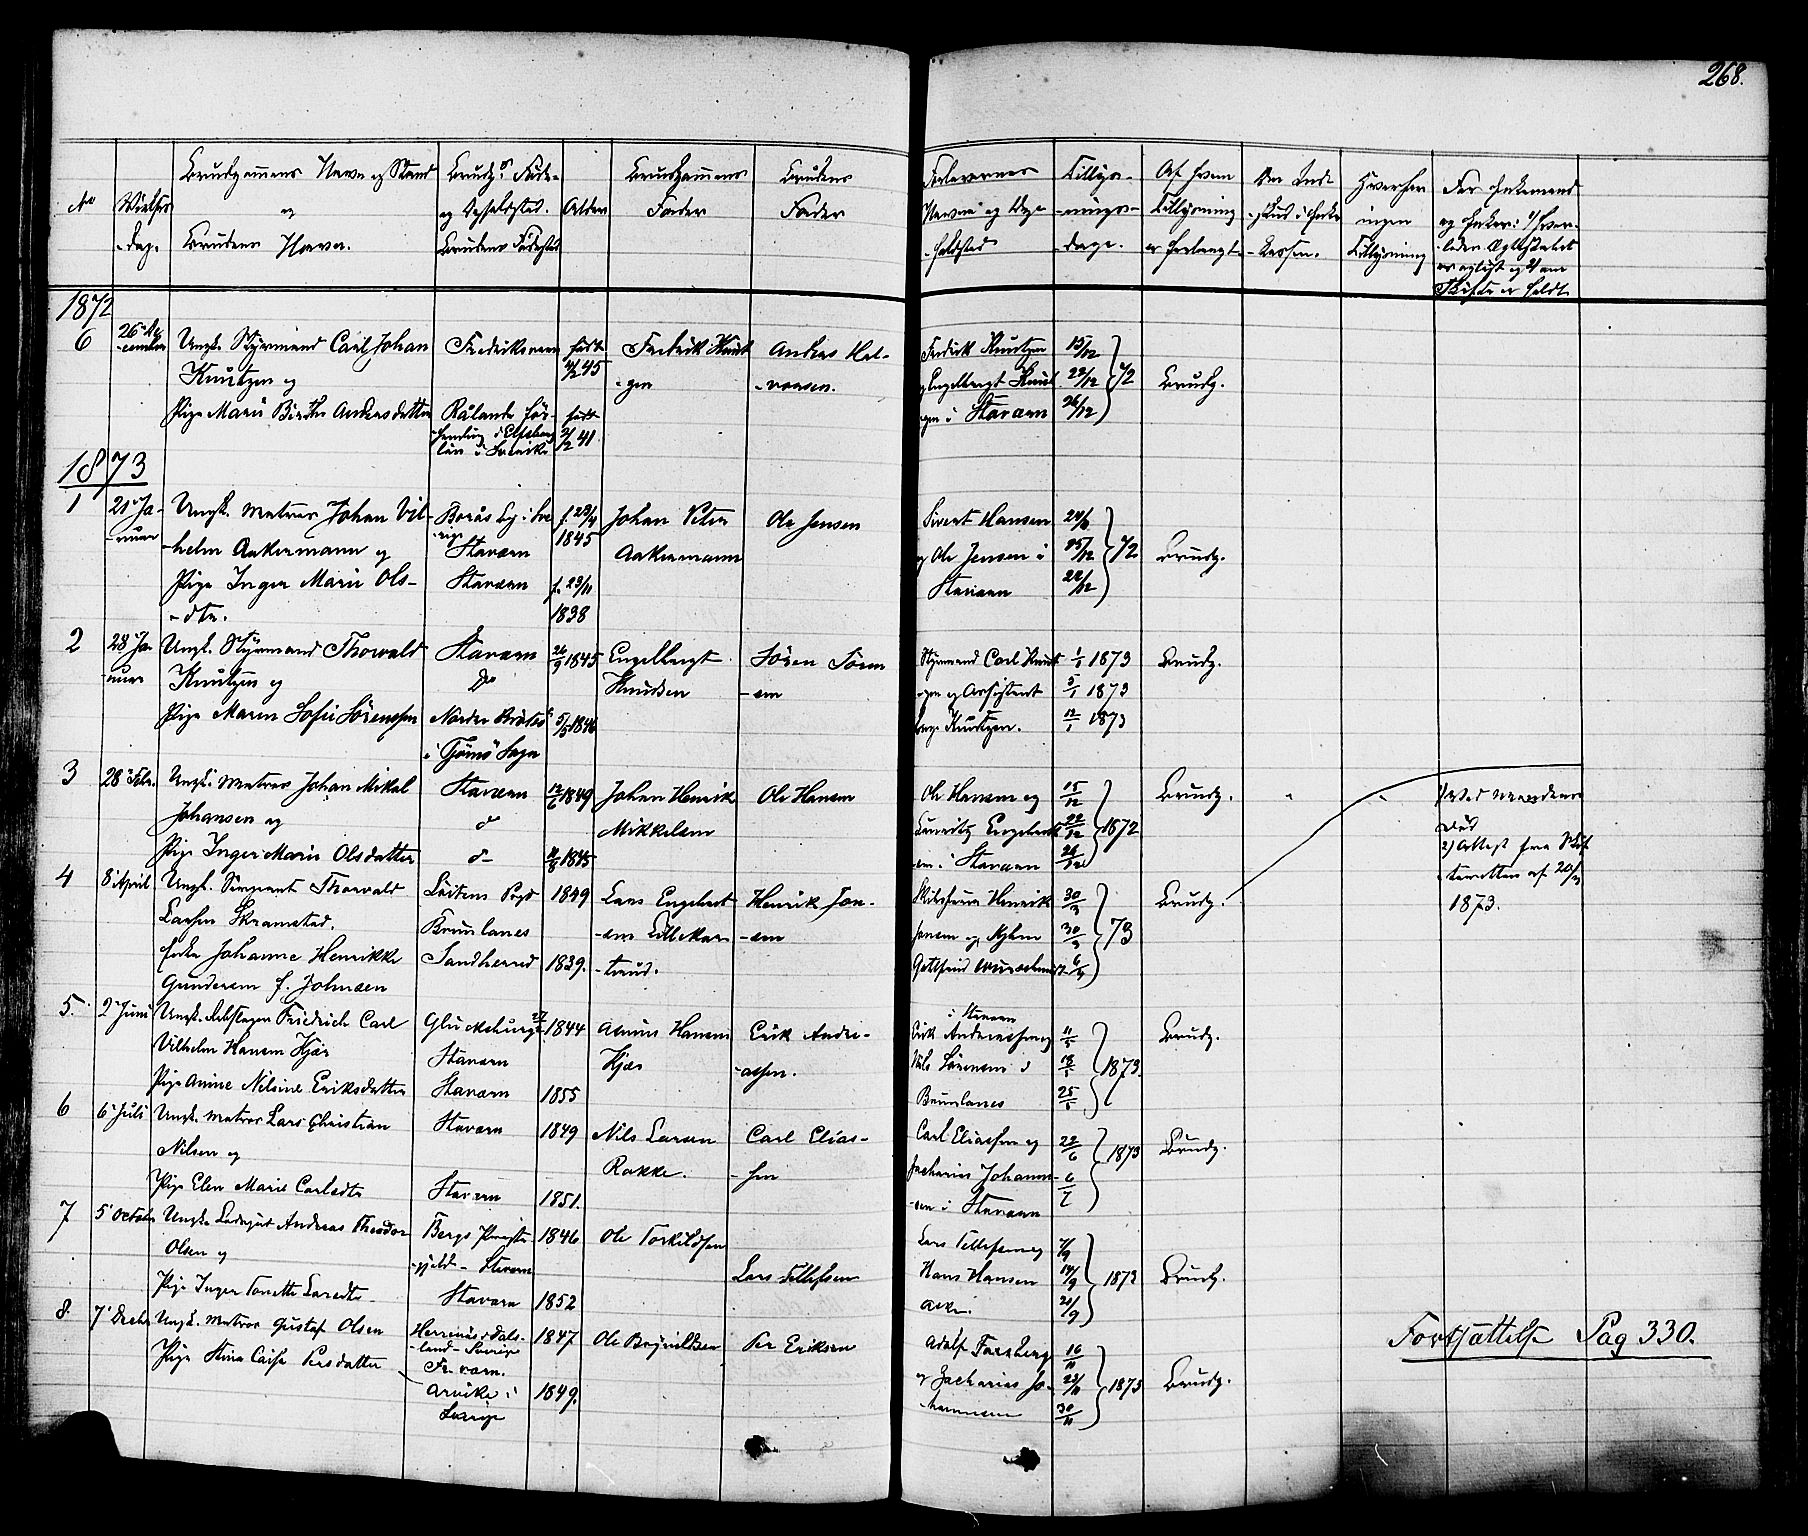 268.
No
Vielses
-dag.
Brudgommens Navn og Stand
og
Brudens Navn.
Brudg.s Føde-
og Opholdssted.
Brudens Fødested
Alder
Brudgommens
Fader
Brudens
Fader
Forlovernes
Navne og Op-
-holdssted
Tillys-
-nings-
-dage.
Af hvem
Tillysning
er forlangt
-Kassen.
Hvorfor
ingen
Tillysning
For Enkemænd
og Enker: 1) hvor-
-ledes Ægteskabet
er opløst og 2) om
Skifte er holdt
1872
6
26 De
-cember
Ungk. Styrmand Carl Johan
Knutzen og
Pige Marie Birthe Andersdatter
Fredriksværn
født
45
født
41.
Fredrik Knut
-zen
Anders Hal-
-vorsen.
Fredrik Knutzen
og Engelbregt Knut
-zen i Staværn
15/12
22/12
26/12
72
Brudg.
1873
1
21 Ja-
-nuar
Ungk. Matros Johan Vil-
-helm Aakermann og
Pige Inger Marie Ols-
-dtr.
Borås By i Sve
-rige
Staværn
Staværn
f. 28/4
1845
f. 23/11
1838
Johan Peter
Aakermann
Ole Jensen
Sivert Hansen
og Ole Jensen i
Staværn
15/12
22/12
72
Brudg.
2
28 Ja
-nuar
Ungk. Styrmand Thorvald
Knutzen og
Pige Maren Sofie Sörenssen
Staværn
Do
i Tjømø Sogn
26/9 1845
5/5 1846
Engelbregt
Knudsen
Sören Sören
-sen
Styrmand Carl Knut
-zen og Assistent
Knutzen.
1/1 1873
5/1 1873
12/1 1873
Brudg.
3
28 Febr.
Ungk. Matros Johan Mikal
Johansen og
Pige Inger Marie Olsdatter
Staværn
do
do
12/6 1849
1845
Johan Henrik
Mikkelsen
Ole Hansen
Ole Hansen og
Lauritz Engebret
-sen i Staværn
15/12
22/12
26/12
1872
Brudg.
"
"
1) Ved Mandens
Død
2) Attest fra Skif
-teretten af
1873.
4
8 April
Ungk. Sergeant Thorvald
Larsen Skramstad.
Enke Johanne Henrikke
Gundersen f. Johnsen
Løitens Prgd
Brunlanes
Sandherred
1849
1839.
Lars Engebret
-sen
-trud.
Henrik Jon-
-sen
Henrik
Jonsen og
Gottfried
30/3
30/3
6/4
73
Brudg.
5.
2 Juni
Ungk. Rebslager Friedrich Carl
Vilhelm Hansen Kjær
Pige Anine Nilsine Eriksdatter
Glücksburg
Staværn
Staværn
1844
1855
Asmus Hansen
Kjær
Erik Andre-
-assen.
i Staværn
Erik Andreassen og
Nils Sörensen i
Brunlanes
11/5
18/5
25/5
1873.
Brudg.
6
6 Juli
Ungk. Matros Lars Christian
Nilsen og
Pige Elen Marie Carlsdtr
Staværn
Staværn
1849
1851.
Nils Larsen
Rakke.
Carl Elias-
-sen
Carl Eliassen og
Zacharias Johann-
-sen i Staværn
22/6
6/7
1873
Brudg.
7
5 October
Ungk. Andreas Theodor
Olsen og
Pige Inger Tonette Larsdtr
Bergs Præste
-gjeld - Stavern
Staværn
1846
1852
Ole Torkildsen
Lars Tellefsen
Lars Tellefsen og
Hans Hansen
7/9
14/9
21/9
1873
Brudg.
8.
7 Decbr
Ungk. Matros Gustaf Olsen
Pige Stina Caisa Persdatter
i Dals-
-land - Sverige
Fr. værn.
Arvika i
Sverige
1847
1849.
Ole
Per Eriksen
Adolf Forsberg
og Zacharias Jo-
-hannesen
16/11
23/11
30/11
1873
Brudg.
Fortsættelse Pag 330.